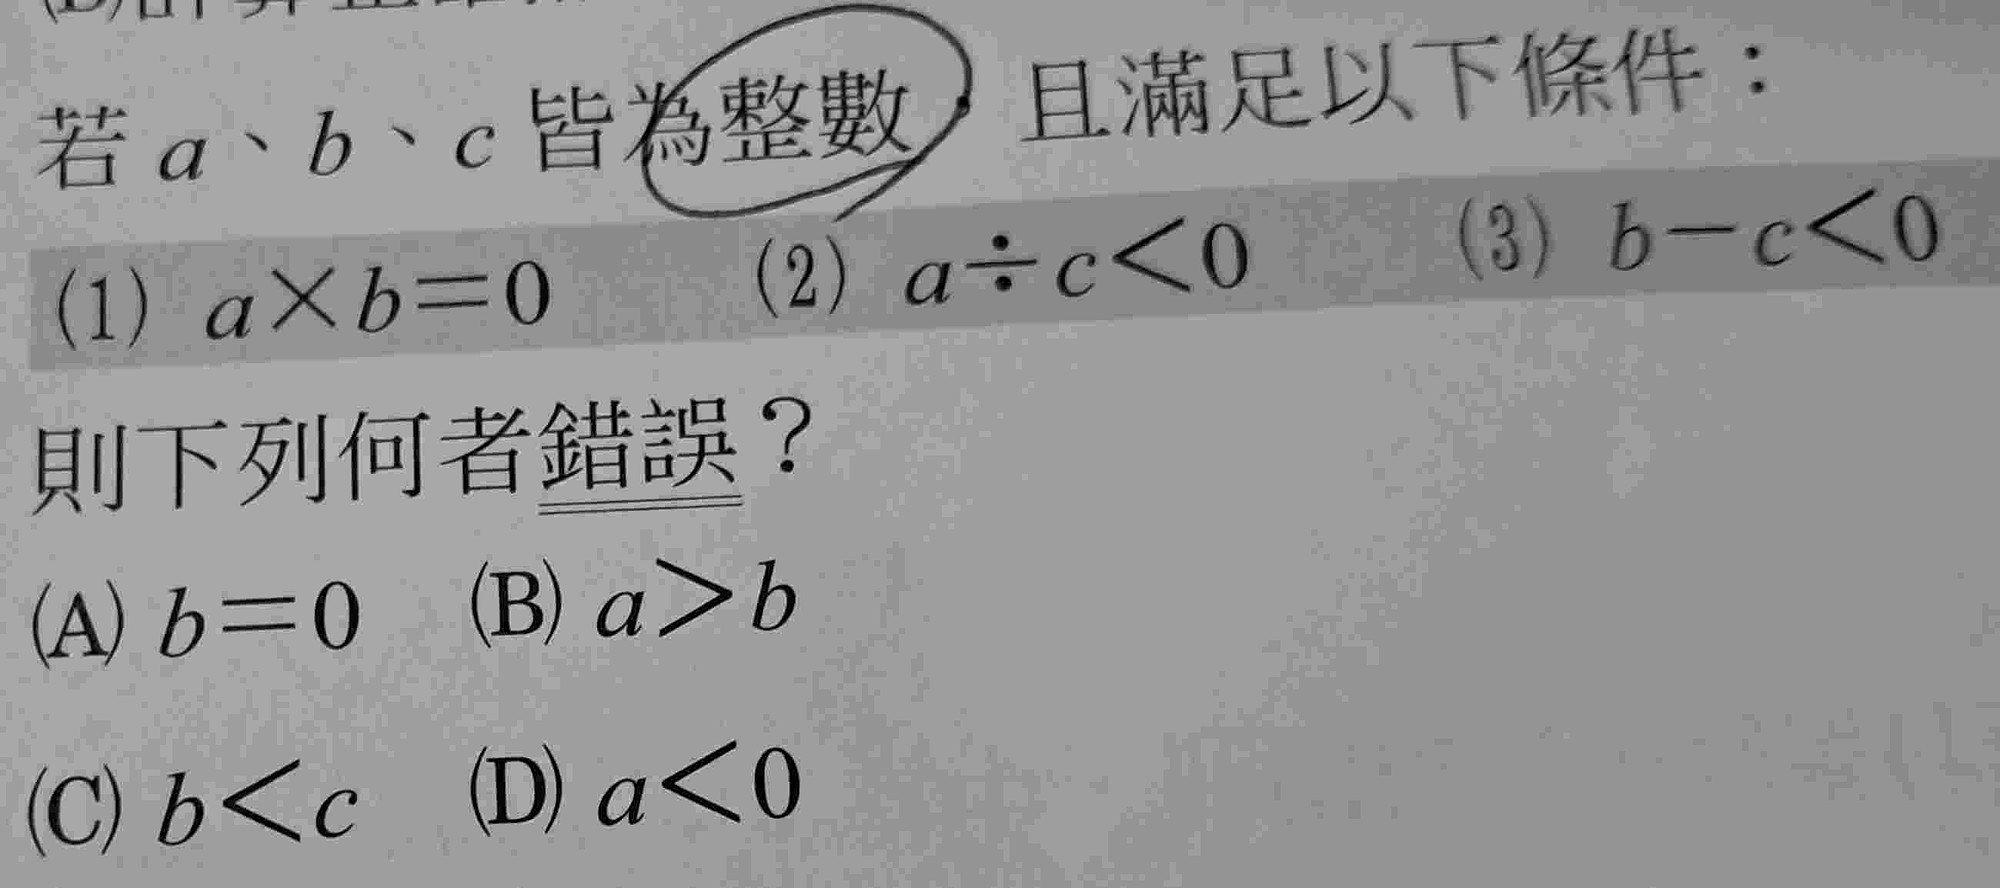 若 a、b、c 皆為整數，且滿足以下條件：
(1) a×b=0 (2) a÷c<0 (3) b-c<0
則下列何者錯誤？
(A) b=0 (B) a>b
(C) b<c (D) a<0